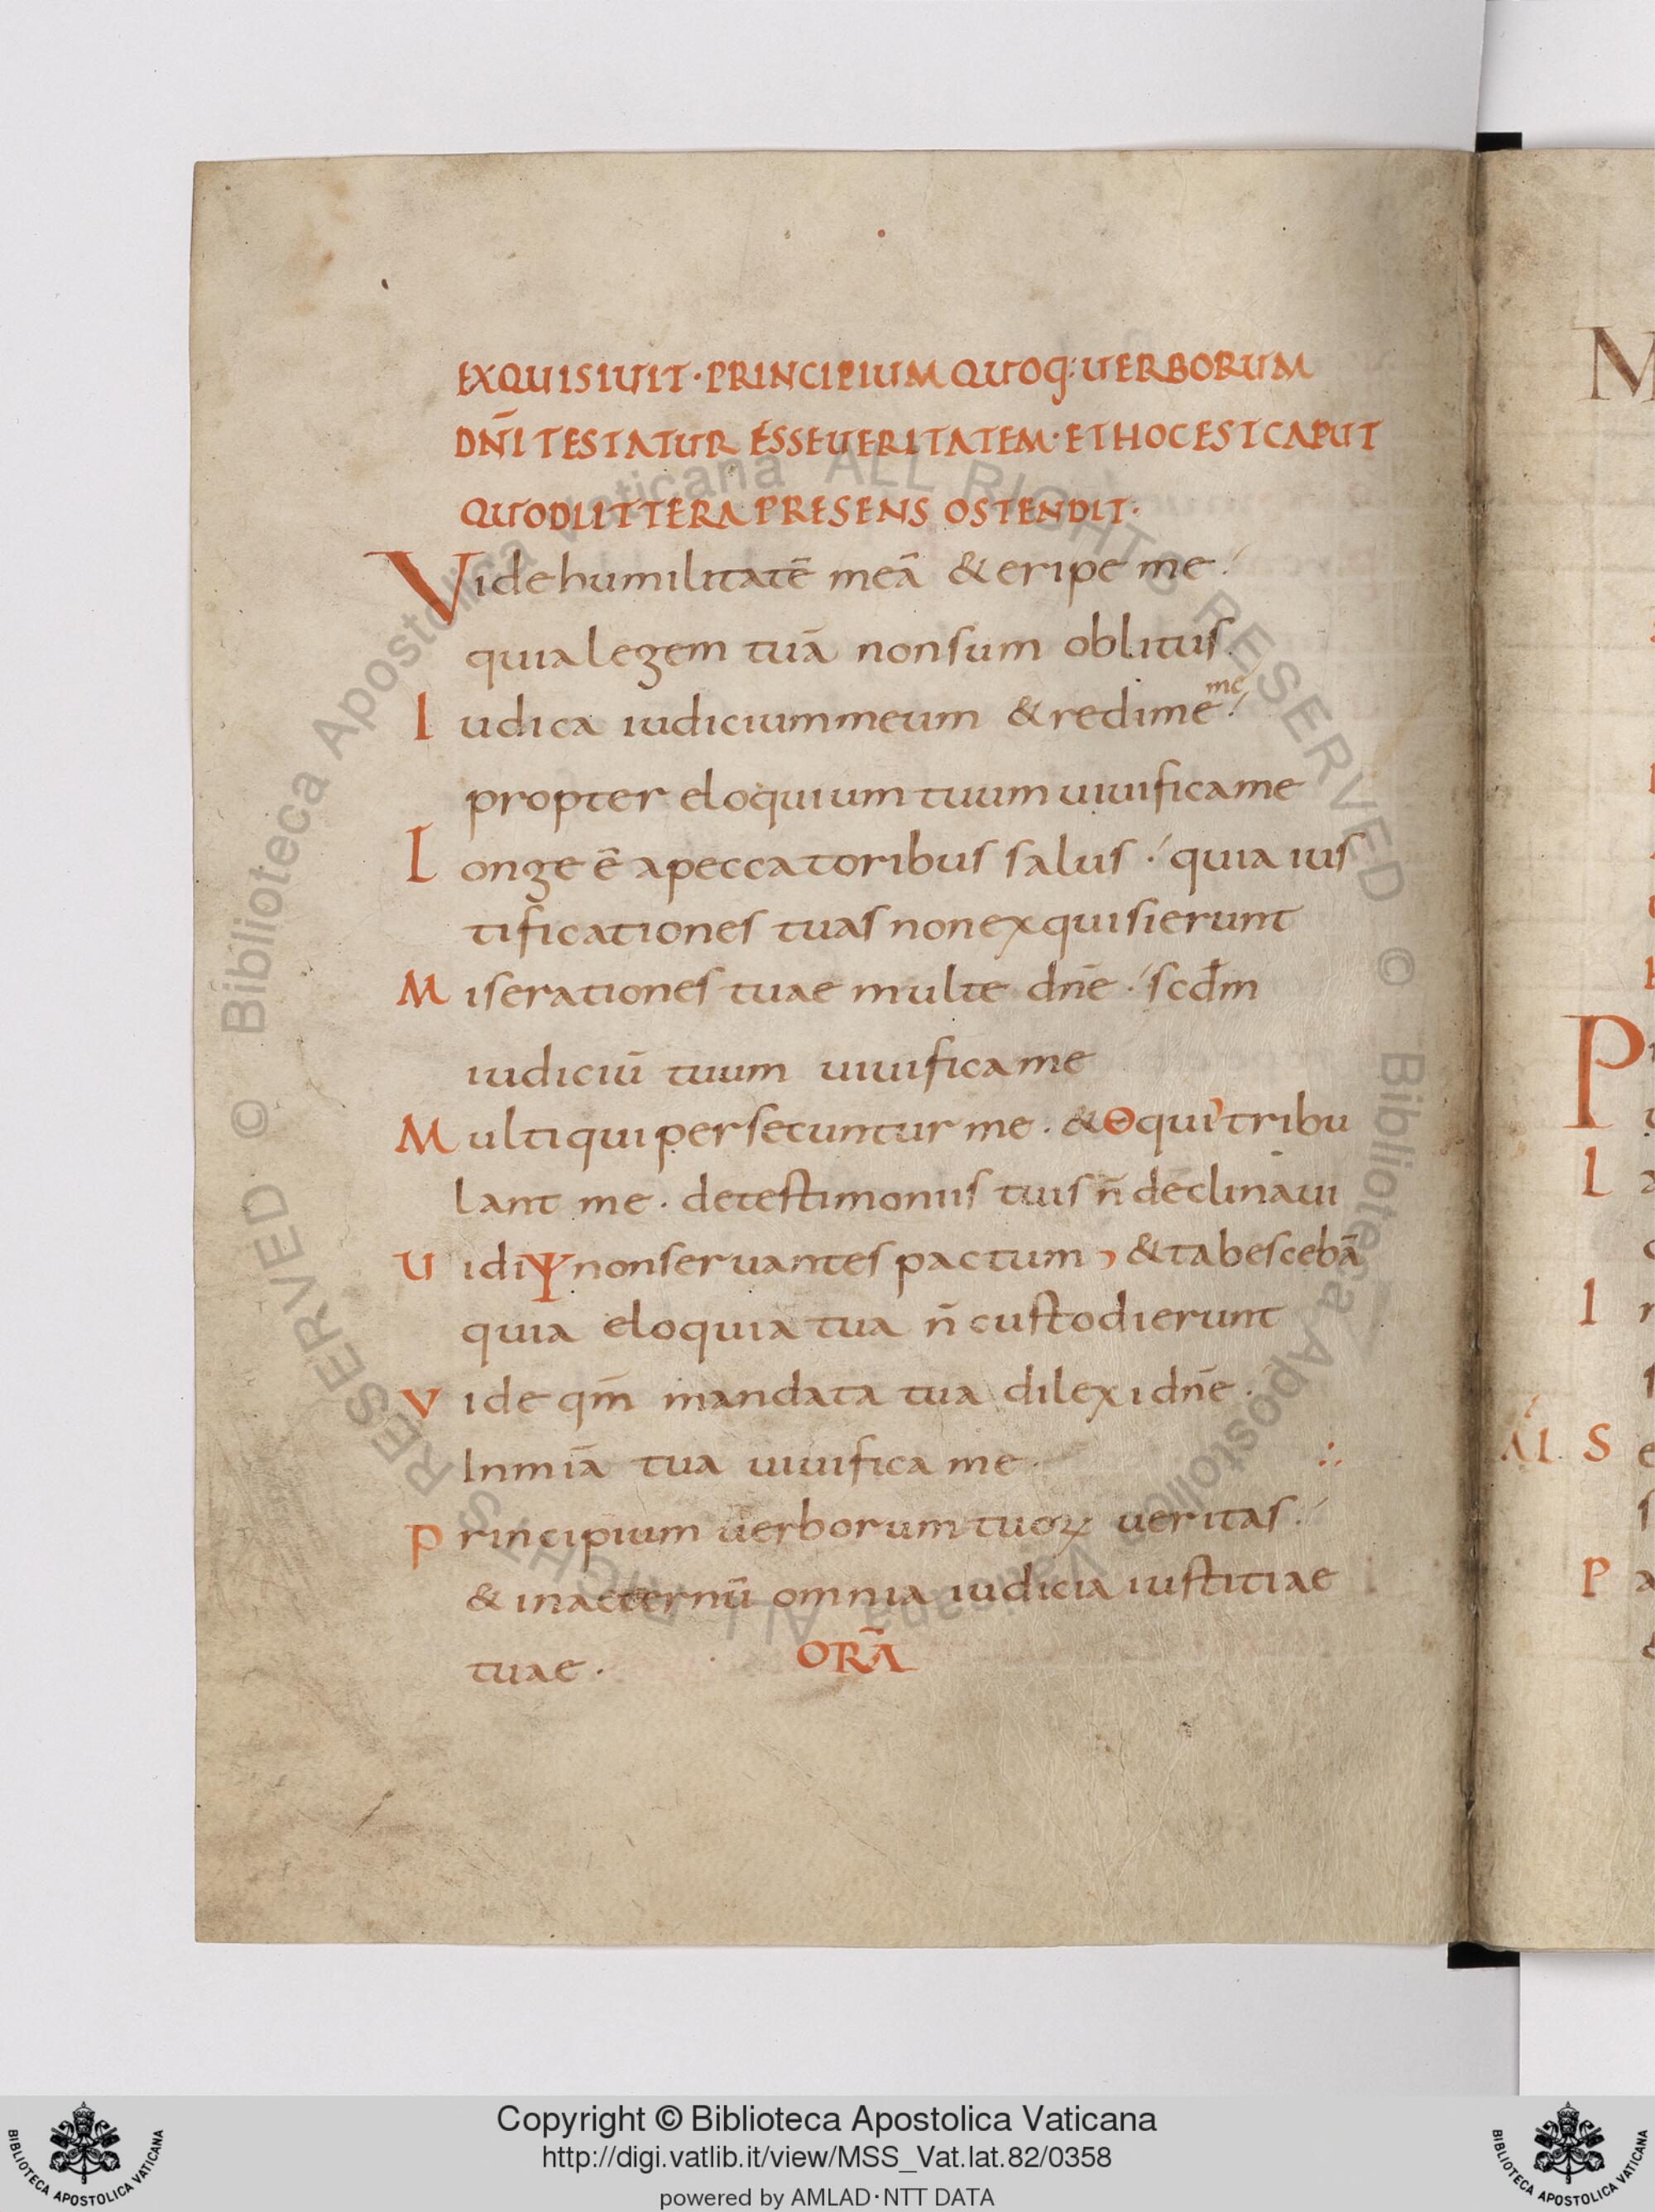 EXQUISIUIT · PRINCIPIUM QUOQ: UERBORUM
DN̄I TESTATUR ÉSSE UERITATEM · ET HOC EST CAPUT
QUOD LITTERA PRESENS OSTENDIT ·
Vide humilitatē meā & eripe me
quia legem tuā non sum oblitus
Iudica iudicium meum & redime me
propter eloquium tuum uiuifica me
Longe ē a peccatoribus salus · quia ius
tificationes tuas non exquisierunt
Miserationes tuae multe dn̄e · scdm̄
iudiciū tuum uiuifica me
Multi qui persecuntur me · & Θ qui tribu
lant me · de testimoniis tuis n̄ declinaui
Uidi Ψ non seruantes pactum , & tabescebā
quia eloquia tua n̄ custodierunt
Vide qm̄ mandata tua dilexi dn̄e ·
In mīa tua uiuifica me · :.
Principium uerborum tuoꝝ ueritas
& in aeternū omnia iudicia iustitiae
tuae · ORĀ
M
P
L
I
Aİ S
P
© Biblioteca Apostolica Vaticana ALL RIGHTS RESERVED © Biblioteca Apostolica Vaticana ALL RIGHTS RESERVED
BIBLIOTECA APOSTOLICA VATICANA
Copyright © Biblioteca Apostolica Vaticana
http://digi.vatlib.it/view/MSS_Vat.lat.82/0358
powered by AMLAD·NTT DATA
BIBLIOTECA APOSTOLICA VATICANA